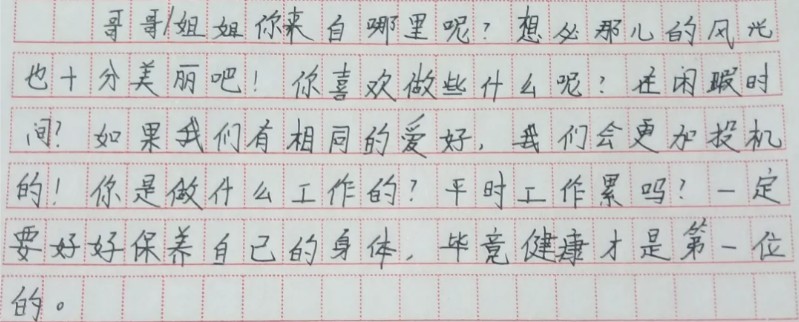 哥哥/姐姐你来自哪里呢？想必那儿的风光
也十分美丽吧！你喜欢做些什么呢？在闲暇时
间？如果我们有相同的爱好，我们会更加投机
的！你是做什么工作的？平时工作累吗？一定
要好好保养自己的身体，毕竟健康才是第一位
的。